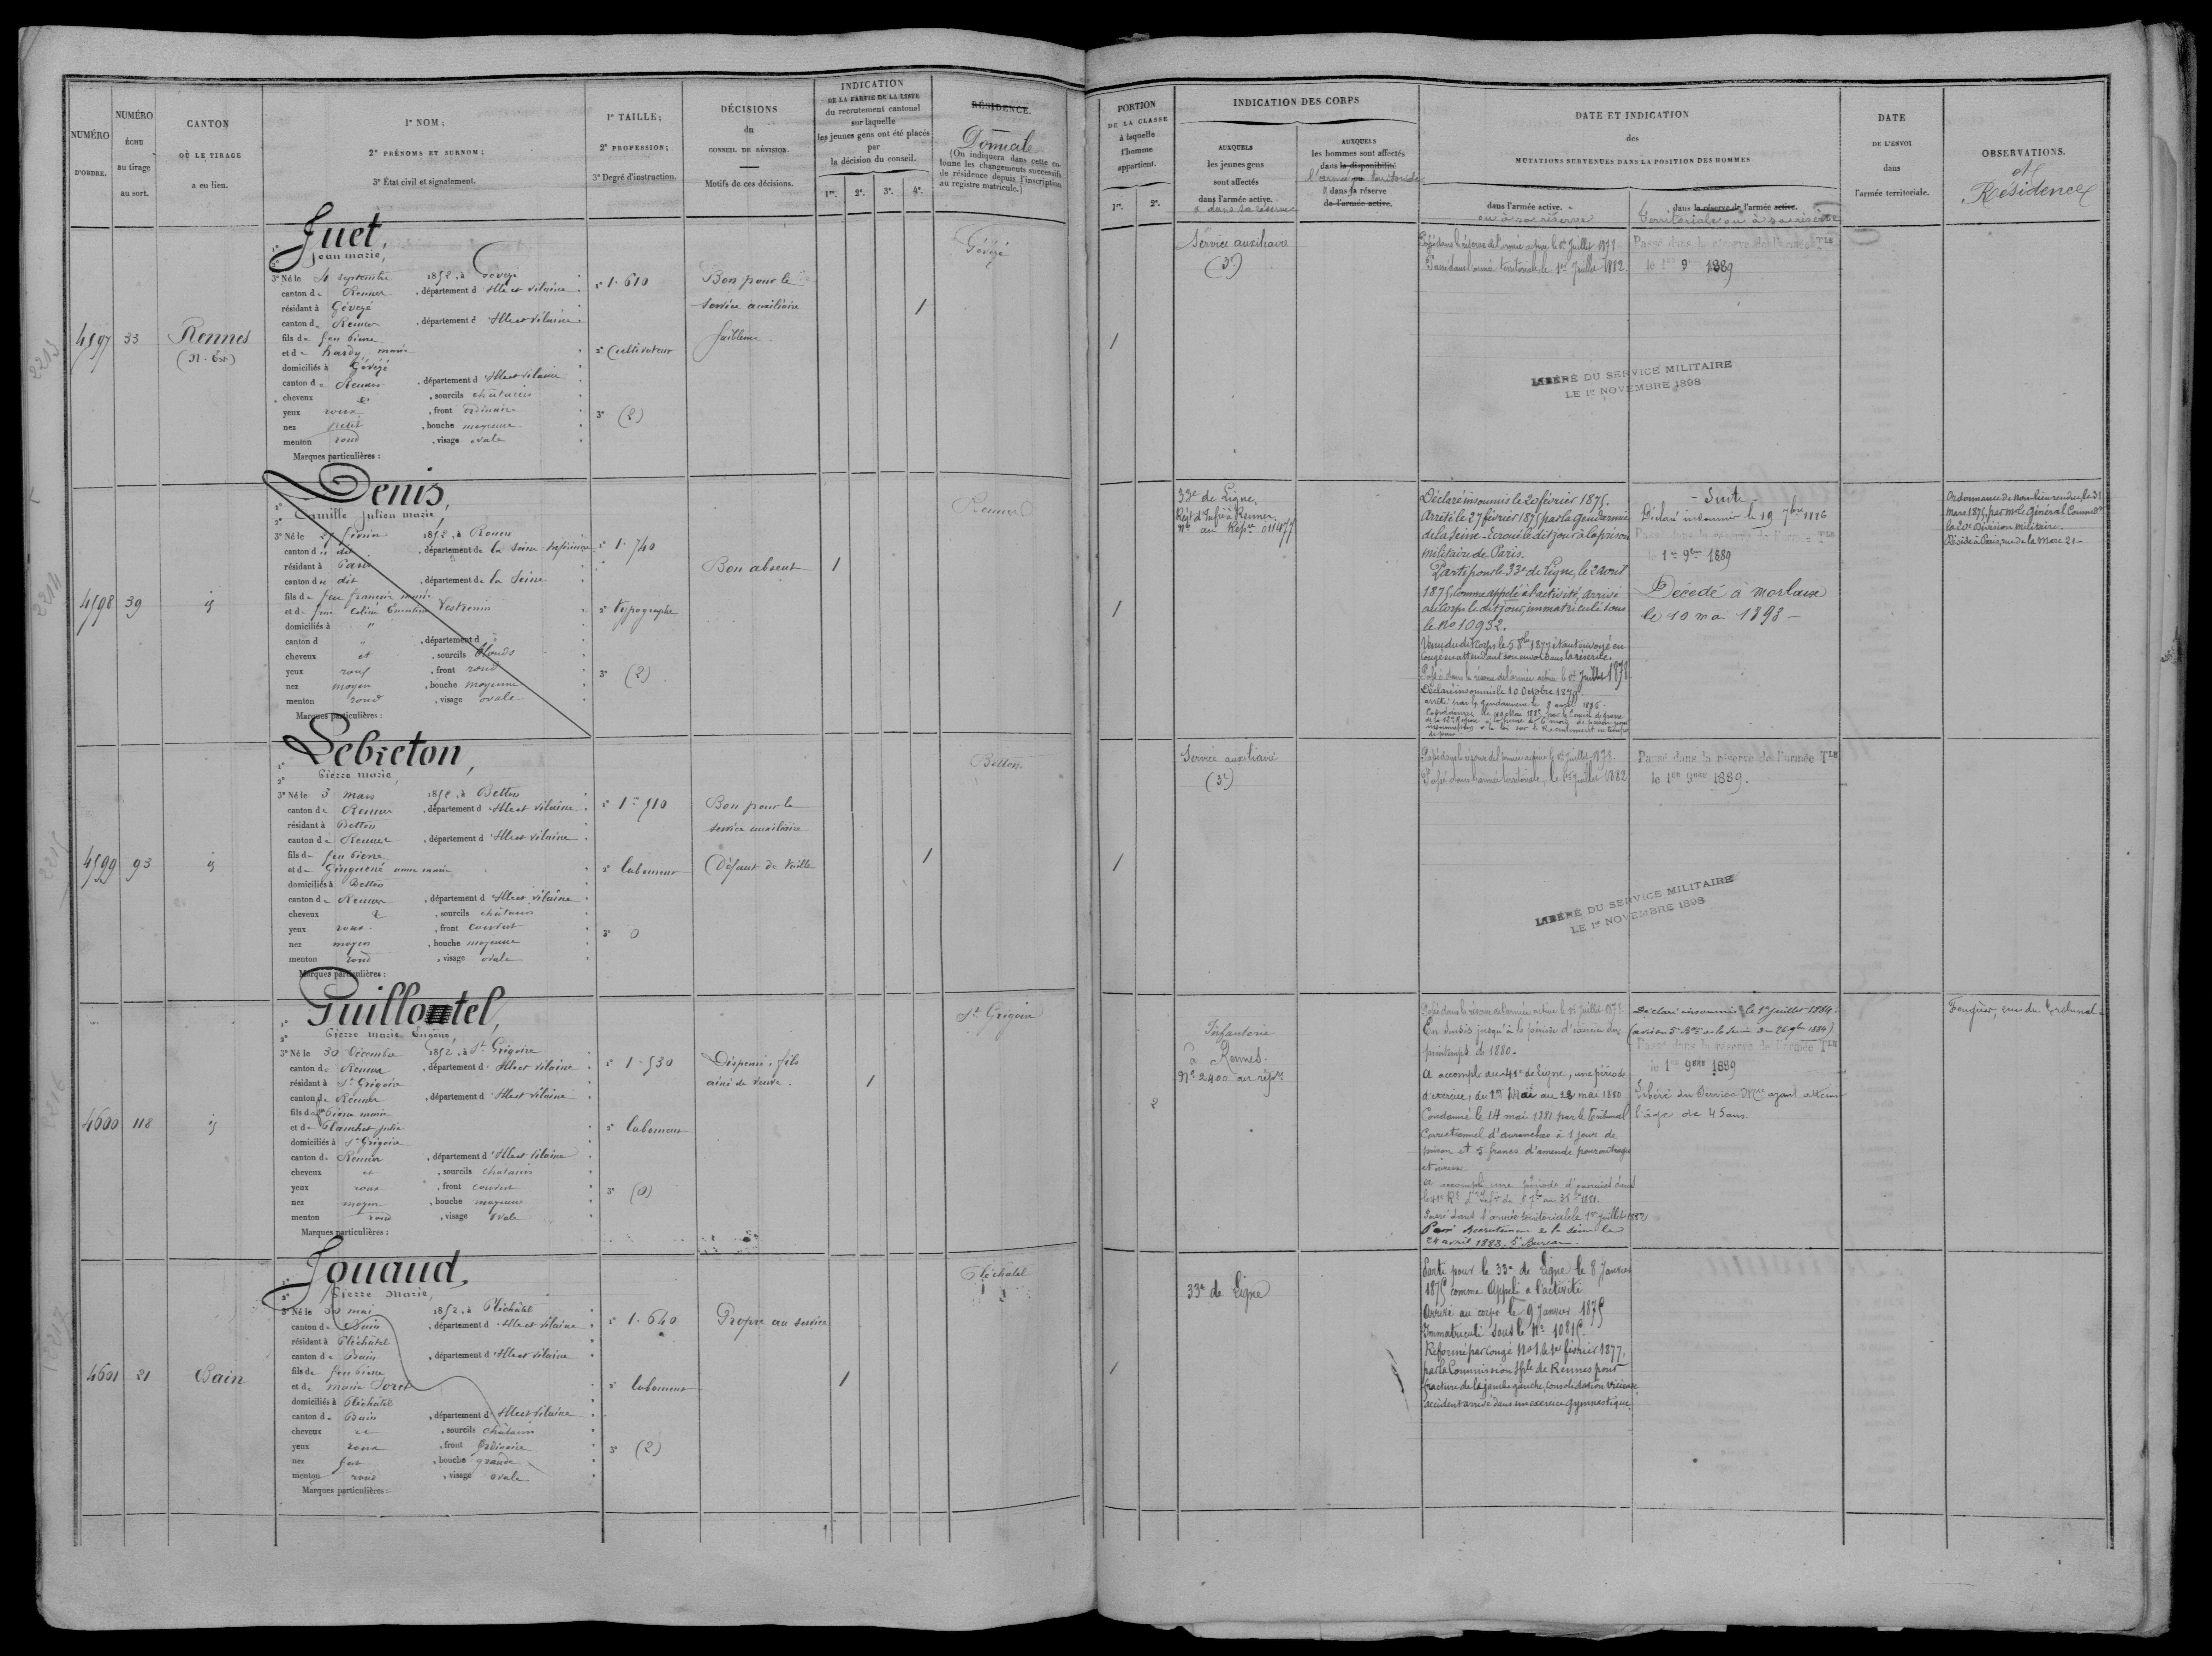 NUMÉRO
D'ORDRE.
NUMÉRO
ÉCHU
au tirage
au sort.
CANTON
OÙ LE TIRAGE
a eu lieu.
1° NOM ;
2° PRÉNOMS ET SURNOM ;
3° État civil et signalement.
1° TAILLE ;
2° PROFESSION ;
3° Degré d'instruction.
DÉCISIONS
du
CONSEIL DE RÉVISION.
Motifs de ces décisions.
INDICATION
DE LA PARTIE DE LA LISTE
du recrutement cantonal
sur laquelle
les jeunes gens ont été placés
par
la décision du conseil.
1re. 2e. 3e. 4e.
RÉSIDENCE.
Domicile
(On indiquera dans cette colonne
les changements successifs
de résidence depuis l'inscription
au registre matricule.)
PORTION
DE LA CLASSE
à laquelle
l'homme
appartient.
1re. 2e.
INDICATION DES CORPS
AUXQUELS
les jeunes gens
sont affectés
dans l'armée active.
& dans sa réserve
AUXQUELS
les hommes sont affectés
dans la disponibilité
l'armée territoriale
& dans sa réserve
de l'armée active.
DATE ET INDICATION
des
MUTATIONS SURVENUES DANS LA POSITION DES HOMMES
dans l'armée active.
ou à sa réserve
dans la réserve de l'armée active.
Territoriale ou à sa réserve
DATE
DE L'ENVOI
dans
l'armée territoriale.
OBSERVATIONS.
et
Résidences
4597 33 Rennes
(N. Est)
Juet,
Jean Marie,
3° Né le 4 septembre 1852, à Gévezé
canton de Rennes, département d'Ille et Vilaine
résidant à Gévezé
canton de Rennes, département d'Ille et Vilaine
fils de feu Pierre
et de hardy marie
domiciliés à Gévezé
canton de Rennes, département d'Ille et Vilaine
cheveux et, sourcils châtains
yeux roux, front ordinaire
nez petit, bouche moyenne
menton rond, visage ovale
Marques particulières :
1° 1.610
2° Cultivateur
3° (2)
Bon pour le
service auxiliaire
faiblesse
1
Gévezé
1
Service auxiliaire
(3e)
Passé dans la réserve de l'armée active le 1er Juillet 1878
Passé dans l'armée territoriale, le 1er Juillet 1882
Passé dans la réserve de l'armée TLE
le 1er 9 1889
LIBÉRÉ DU SERVICE MILITAIRE
LE 1er NOVEMBRE 1898
4598 39 id
Denis,
Camille Julien Marie,
3° Né le 27 février 1852, à Rouen
canton du dit, département de la Seine inférieure
résidant à Paris
canton du dit, département de la Seine
fils de feu françois marie
et de feue Celina
domiciliés à "
canton d ", département d
cheveux et, sourcils blonds
yeux roux, front rond
nez moyen, bouche moyenne
menton rond, visage ovale
Marques particulières :
1° 1.740
2° typographe
3° (2)
Bon absent
1
Rennes
1
33e de Ligne,
Régt d'Infie à Rennes
No au Répre 011477
Déclaré insoumis le 20 février 1875.
Arrêté le 27 février 1875 par la Gendarmerie
de la Seine. Écroué le dit jour à la prison
militaire de Paris.
Parti pour le 33e de Ligne, le 2 avril
1875, comme appelé à l'activité, arrivé
au Corps le dit jour, immatriculé sous
le No 10932.
Venu du dit Corps le 5 8bre 1877 étant envoyé en
congé en attendant son envoi dans la réserve.
Passé dans la réserve de l'armée active le 1er Juillet 1878
Déclaré insoumis le 10 Octobre 1879.
arrêté par la gendarmerie le 9 avril 1886
- Suite -
Déclaré insoumis le 19 7bre 1886
Passé dans la réserve de l'armée TLE
le 1er 9bre 1889
Décédé à Morlaix
le 10 mai 1893 -
Ordonnance de non-lieu rendue, le 31
Mars 1875, par Mr le Général Commdt
la 20e Division militaire.
Réside à Paris, rue de la Mare 21 -
4599 93 id
Lebreton,
Pierre Marie,
3° Né le 5 mars 1852, à Betton
canton de Rennes, département d'Ille et Vilaine
résidant à Betton
canton de Rennes, département d'Ille et Vilaine
fils de feu Pierre
et de Ginguené anne marie
domiciliés à Betton
canton de Rennes, département d'Ille et Vilaine
cheveux et, sourcils châtains
yeux roux, front couvert
nez moyen, bouche moyenne
menton rond, visage ovale
Marques particulières :
1° 1m 510
2° laboureur
3° 0
Bon pour le
service auxiliaire
Défaut de taille
1
Betton
1
Service auxiliaire
(3e)
Passé dans la réserve de l'armée active le 1er Juillet 1878
Passé dans l'armée territoriale, le 1er Juillet 1882
Passé dans la réserve de l'armée TLE
le 1ER 9BRE 1889.
LIBÉRÉ DU SERVICE MILITAIRE
LE 1er NOVEMBRE 1898
4600 118 id
Guilloutel,
Pierre Marie Eugène,
3° Né le 30 Décembre 1852, à St Grégoire
canton de Rennes, département d'Ille et Vilaine
résidant à St Grégoire
canton de Rennes, département d'Ille et Vilaine
fils de feu Pierre marie
et de Blanchet julie
domiciliés à St Grégoire
canton de Rennes, département d'Ille et Vilaine
cheveux et, sourcils châtains
yeux roux, front couvert
nez moyen, bouche moyenne
menton rond, visage ovale
Marques particulières :
1° 1.530
2° laboureur
3° (0)
Dispensé, fils
ainé de veuve.
1
St Grégoire
2
Infanterie
à Rennes.
No 2400 au répre
Passé dans la réserve de l'armée active le 1er Juillet 1878
En sursis jusqu'à la période d'exercice du
printemps de 1880.
A accompli au 41e de ligne, une période
d'exercices, du 1er Mai au 28 mai 1880
Condamné le 14 mai 1881 par le Tribunal
Correctionnel d'avranches à 1 jour de
prison et 5 francs d'amende pour outrages
et ivresse
A accompli une période d'exercices dans
Passé dans l'armée territoriale le 1er juillet 1882
Passé au recrutement de la Seine le
24 avril 1883. 5e Bureau.
Déclaré insoumis le 1er juillet 1884.
(avis du 5e Bau de la Seine du 26 9bre 1884)
Passé dans la réserve de l'armée TLE
le 1er 9BRE 1889
Libéré du Service Mre ayant atteint
l'âge de 45 ans.
Fougères, rue du Tribunal
4601 21 Bain
Jouaud,
Pierre Marie,
3° Né le 30 mai 1852, à Pléchâtel
canton de Bain, département d'Ille et Vilaine
résidant à Pléchâtel
canton de Bain, département d'Ille et Vilaine
fils de feu Pierre
et de marie Soret
domiciliés à Pléchâtel
canton de Bain, département d'Ille et Vilaine
cheveux et, sourcils châtains
yeux roux, front ordinaire
nez fort, bouche grande
menton rond, visage ovale
Marques particulières :
1° 1.640
2° laboureur
3° (2)
Propre au service
1
Pléchâtel
1
33e de Ligne
Parti pour le 33e de Ligne le 8 Janvier
1875 comme Appelé à l'activité
Arrivé au corps le 9 Janvier 1875
Immatriculé sous le No 10815.
Réformé par congé No 1 le 1er février 1877,
par la Commission Sple de Rennes pour
fracture de la jambe gauche, consolidation vicieuse,
accident arrivé dans un exercice gymnastique.
2213
2214
2215
2216
2217